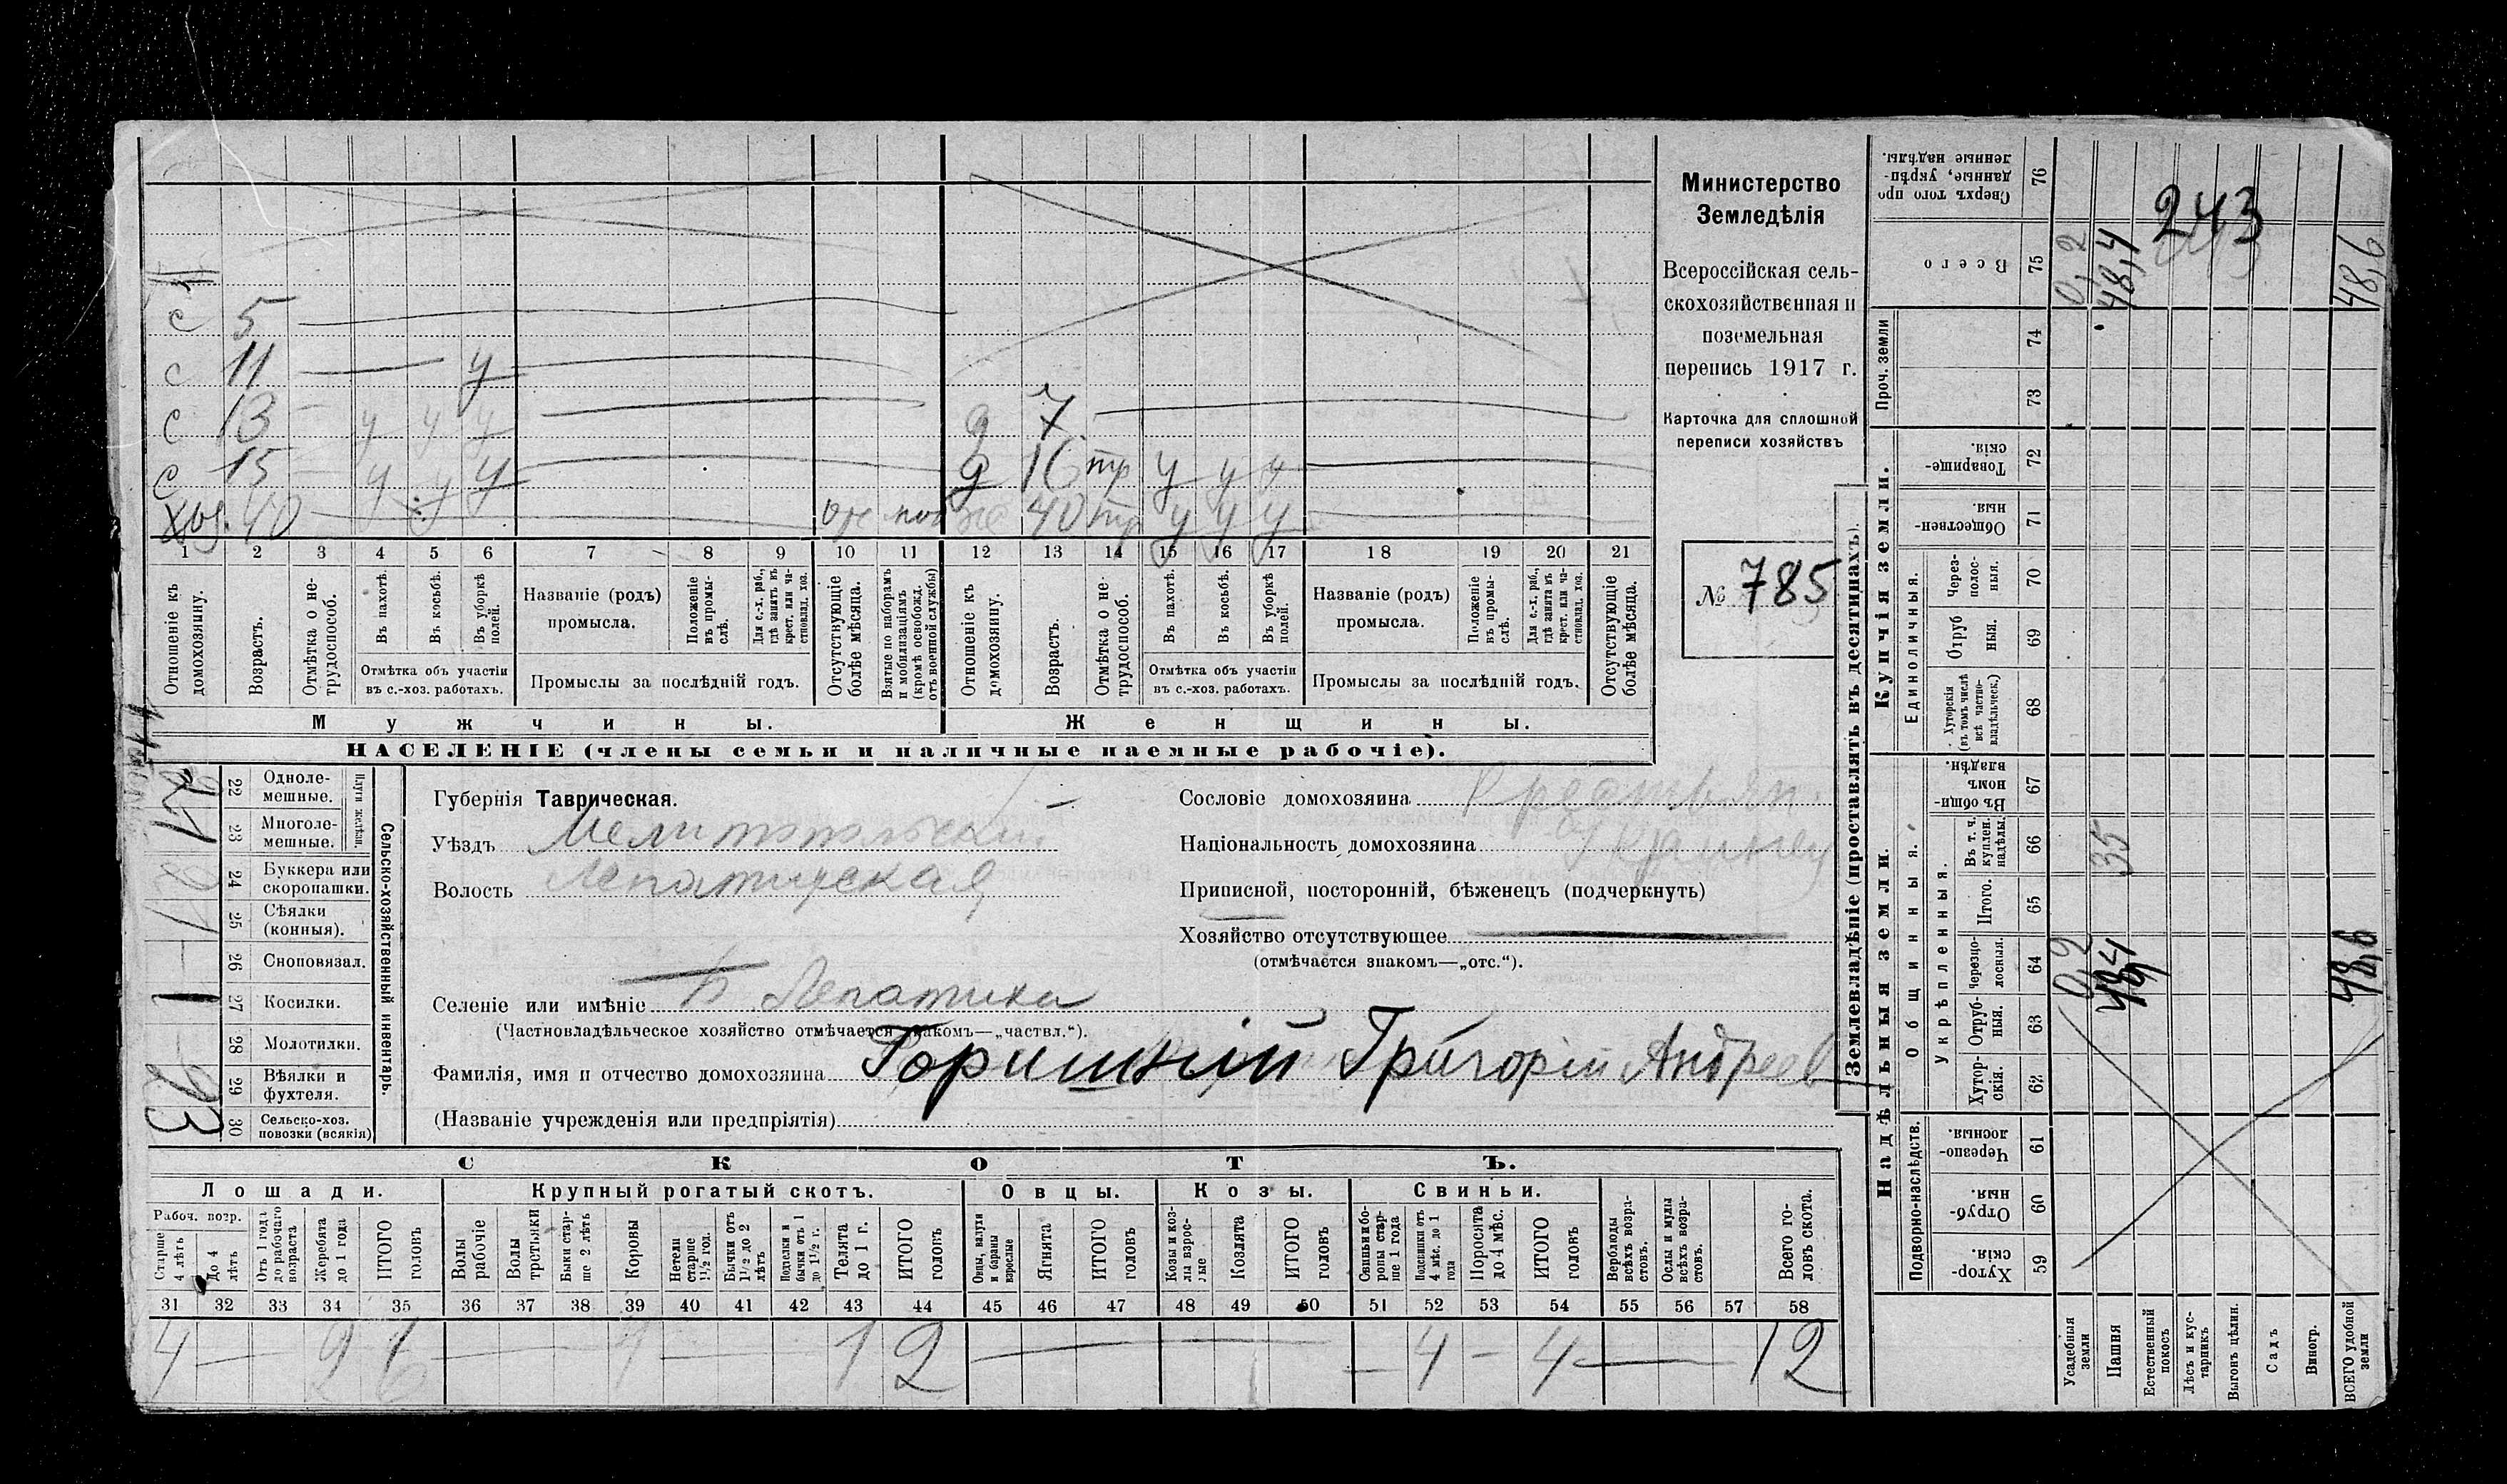 243
с 5
с 11 у
с 13 у у у
с 15 у у у
хоз. 40 у
д 7
д 16 тр у у у
40 тр у у у
1 2 3 4 5 6 7 8 9 10 11 12 13 14 15 16 17 18 19 20 21
Отношеніе къ домохозяину.
Возрастъ.
Отмѣтка о нетрудоспособ.
Въ пахотѣ.
Въ косьбѣ.
Въ уборкѣ полей.
Отмѣтка объ участіи въ с.-хоз. работахъ.
Названіе (родъ) промысла.
Положеніе въ промыслѣ.
Для с.-х. раб., гдѣ занятъ въ крест. или частновлад. хоз.
Промыслы за послѣдній годъ.
Отсутствующіе болѣе мѣсяца.
Взятые по наборамъ и мобилизаціямъ (кромѣ освобожд. отъ военной службы)
Отношеніе къ домохозяину.
Возрастъ.
Отмѣтка о нетрудоспособ.
Въ пахотѣ.
Въ косьбѣ.
Въ уборкѣ полей.
Отмѣтка объ участіи въ с.-хоз. работахъ.
Названіе (родъ) промысла.
Положеніе въ промыслѣ.
Для с.-х. раб., гдѣ занята въ крест. или частновлад. хоз.
Промыслы за послѣдній годъ.
Отсутствующіе болѣе мѣсяца.
Мужчины.
Женщины.
НАСЕЛЕНІЕ (члены семьи и наличные наемные рабочіе).
Министерство
Земледѣлія
Всероссійская сель-
скохозяйственная и
поземельная
перепись 1917 г.
Карточка для сплошной
переписи хозяйствъ
№ 785
Сельско-хозяйственный инвентарь.
Плуги желѣзн.
22 Одноле-
мешные.
23 Многоле-
мешные.
24 Буккера или
скоропашки.
25 Сѣялки
(конныя).
26 Сноповязал.
27 Косилки.
28 Молотилки.
29 Вѣялки и
фухтеля.
30 Сельско-хоз.
повозки (всякія)
Губернія Таврическая.
Уѣздъ Мелитопольскій
Волость Лепатихская
Селеніе или имѣніе Б Лепатиха
(Частновладѣльческое хозяйство отмѣчается знакомъ—„частвл.“).
Фамилія, имя и отчество домохозяина Горишній Григорій Андреев
(Названіе учрежденія или предпріятія)
Сословіе домохозяина Крестьян.
Національность домохозяина Украинец
Приписной, посторонній, бѣженецъ (подчеркнуть)
Хозяйство отсутствующее
(отмѣчается знакомъ—„отс.“).
СКОТЪ.
Лошади. Крупный рогатый скотъ. Овцы. Козы. Свиньи.
Рабоч. возр.
Старше 4 лѣтъ
До 4 лѣтъ
Отъ 1 года до рабочаго возраста
Жеребята до 1 года
ИТОГО головъ
Волы рабочіе
Волы третьяки
Быки старше 2 лѣтъ
Коровы
Нетели старше 1½ год.
Бычки отъ 1½ до 2 лѣтъ
Подтелки и бычки отъ 1 до 1½ г.
Телята до 1 г.
ИТОГО головъ
Овцы, валухи и бараны взрослые
Ягнята
ИТОГО головъ
Козы и козлы взрослые
Козлята
ИТОГО головъ
Свиньи и боровы старше 1 года
Подсвинки отъ 4 мѣс. до 1 года
Поросята до 4 мѣс.
ИТОГО головъ
Верблюды всѣхъ возрастовъ.
Ослы и мулы всѣхъ возрастовъ.
Всего головъ скота.
31 32 33 34 35 36 37 38 39 40 41 42 43 44 45 46 47 48 49 50 51 52 53 54 55 56 57 58
4 — 2 6 — 1 — 1 2 — 4 — 4 — 12
Землевладѣніе (проставлять въ десятинахъ).
Надѣльныя земли.
Купчія земли.
Проч. земли
Подворно-наслѣдств.
Общинныя.
Укрѣпленныя.
Единоличныя.
Сверхъ того проданные, укрѣпленные надѣлы. 76
Всего 75
74
73
Товарищескія. 72
Общественныя. 71
Черезполосныя. 70
Отрубныя. 69
Хуторскія (въ томъ числѣ всѣ частновладѣльческ.) 68
Въ общинномъ владѣн. 67
Въ т. ч. куплен. надѣлы. 66
Итого. 65
Черезполосныя. 64
Отрубныя. 63
Хуторскія. 62
Черезполосныя. 61
Отрубныя 60
Хуторскія. 59
0,2 48,4 48,6
35
0,2 48,4 48,6
Усадебныя земли
Пашня
Естественный покосъ
Лѣсъ и кустарникъ
Выгонъ цѣлин.
Садъ
Виногр.
ВСЕГО удобной земли